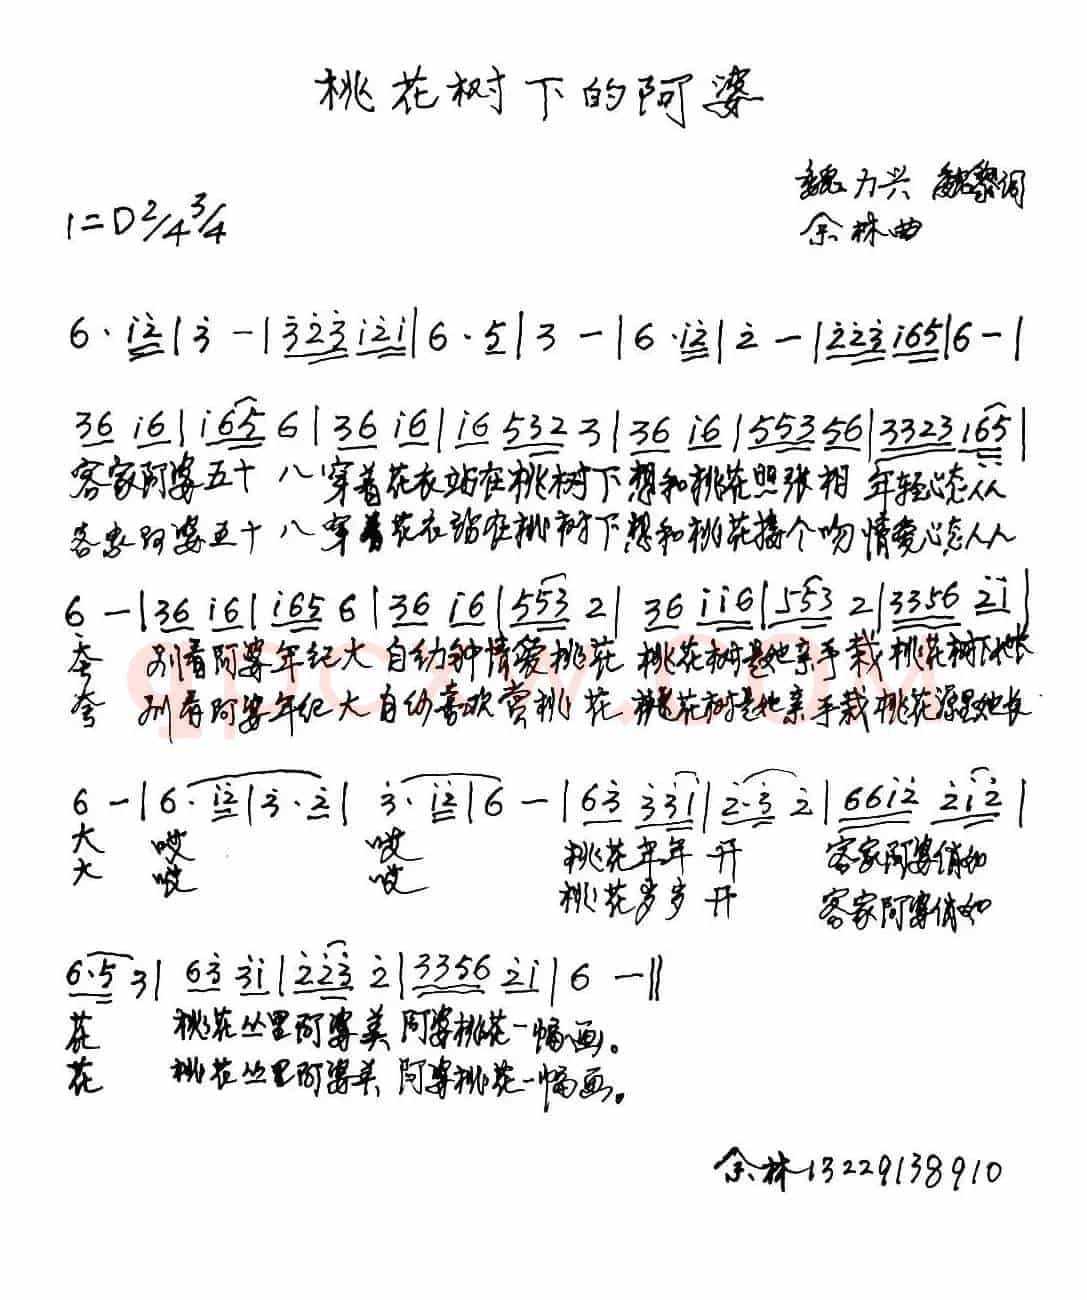 桃花树下的阿婆
魏力兴 魏黎词
1=D 2/4 3/4
余林曲
6· i̇2̇ | 3̇ - | 3̇2̇3̇ i̇2̇i̇ | 6· 5 | 3 - | 6· i̇2̇ | 2̇ - | 2̇2̇3̇ i̇65 | 6 - |
36 i̇6 | i̇65 6 | 36 i̇6 | i̇6 532 3 | 36 i̇6 | 553 56 | 3323 i̇65 |
客家阿婆五十八穿着花衣站在桃树下想和桃花照张相 年轻心态人人
客家阿婆五十八穿着花衣站在桃树下想和桃花接个吻 情爱心态人人
6 - | 36 i̇6 | i̇65 6 | 36 i̇6 | 553 2 | 36 i̇i̇6 | 553 2 | 3356 2̇i̇ |
夸 别看阿婆年纪大 自幼钟情爱桃花 桃花树是她亲手栽 桃花树下她长
夸 别看阿婆年纪大 自幼喜欢赏桃花 桃花树是她亲手栽 桃花源里她长
6 - | 6· i̇2̇ | 3̇· 2̇ | 3̇· i̇2̇ | 6 - | 63̇ 3̇3̇i̇ | 2̇·3̇ 2̇ | 66i̇2̇ 2̇i̇2̇ |
大 哎 哎 桃花年年开 客家阿婆俏如
大 哎 哎 桃花岁岁开 客家阿婆俏如
6·5 3 | 63̇ 3̇i̇ | 2̇2̇3̇ 2̇ | 3356 2̇i̇ | 6 - ‖
花 桃花丛里阿婆美 阿婆桃花一幅画。
花 桃花丛里阿婆美 阿婆桃花一幅画。
余林13229138910